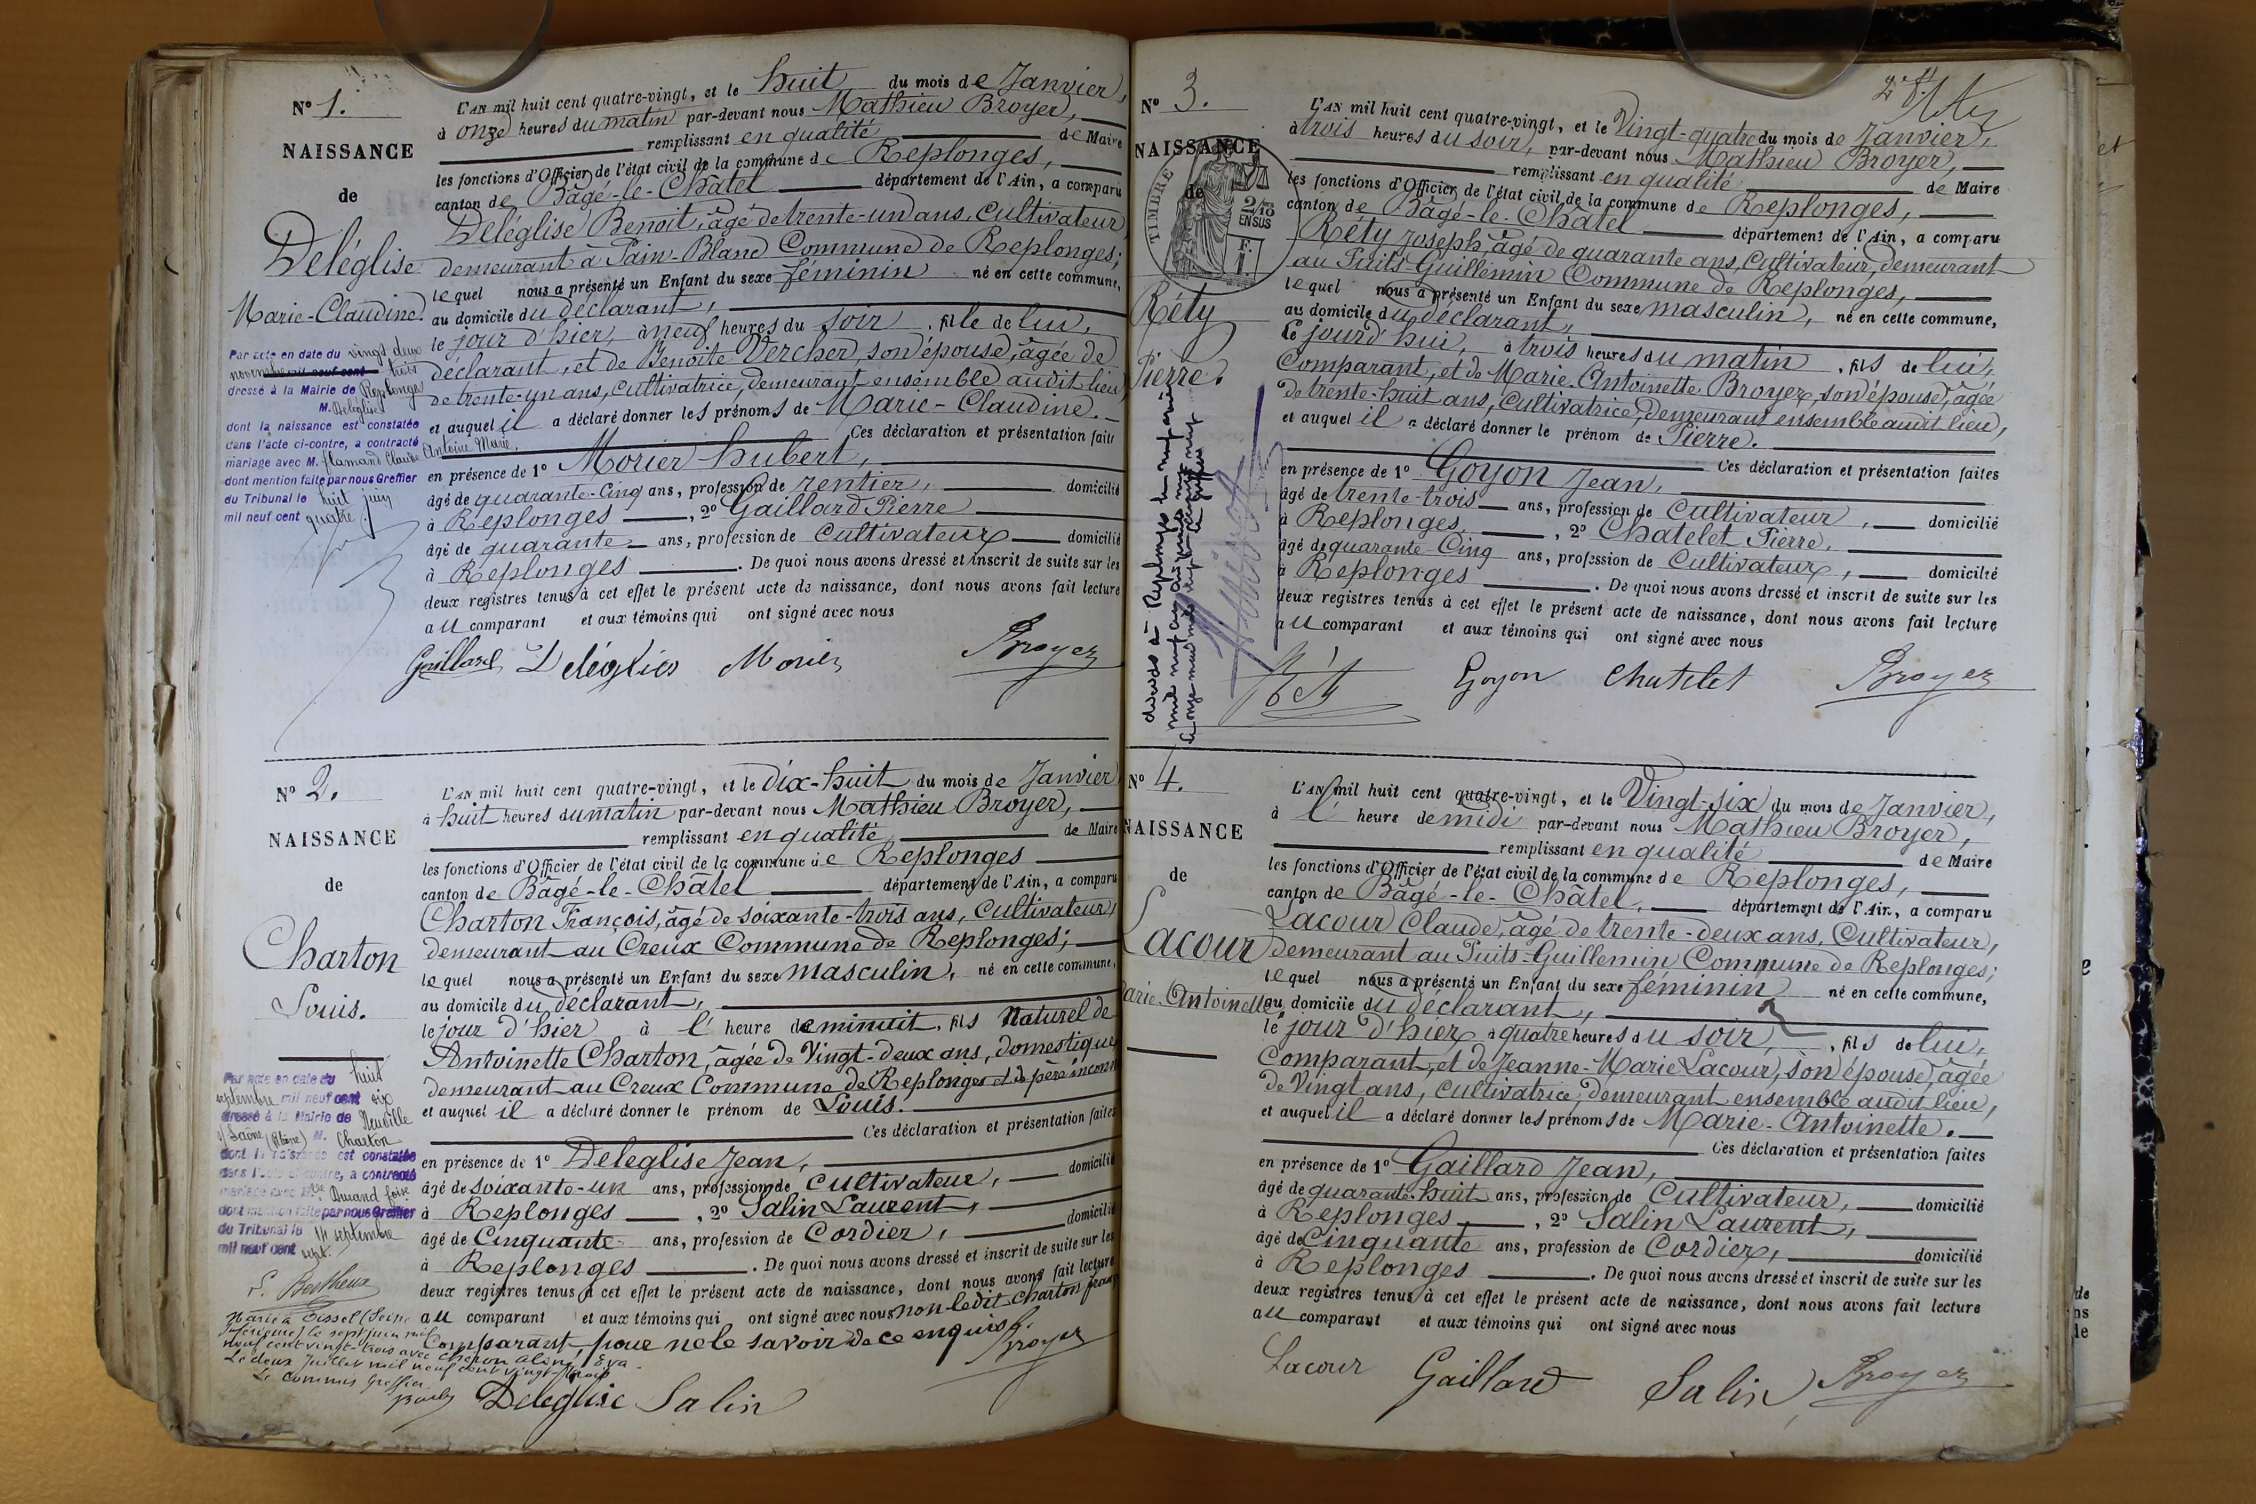 N° 1.
NAISSANCE
de
Deléglise
Marie-Claudine.
Par acte en date du vingt deux
novembre mil neuf cent trois
dressé à la Mairie de Replonges
M. Deléglise
dont la naissance est constatée
dans l'acte ci-contre, a contracté
mariage avec M. Flamand Claude Antoine Marie.
dont mention faite par nous Greffier
du Tribunal le huit juin
mil neuf cent quatre.
L'AN mil huit cent quatre-vingt, et le huit du mois de Janvier,
à onze heures du matin par-devant nous Mathieu Broyer,
remplissant en qualité de Maire
les fonctions d'Officier de l'état civil de la commune de Replonges,
canton de Bâgé-le-Châtel département de l'Ain, a comparu
Deléglise Benoit, âgé de trente-un ans, Cultivateur
demeurant à Pain-Blanc Commune de Replonges;
lequel nous a présenté un Enfant du sexe féminin né en cette commune,
au domicile du déclarant,
le jour d'hier, à neuf heures du soir, fille de lui,
déclarant, et de Benoîte Vercher, son épouse, âgée de
de trente-un ans, cultivatrice, demeurant ensemble audit lieu,
et auquel il a déclaré donner les prénoms de Marie-Claudine.
Ces déclaration et présentation faites
en présence de 1° Morier hubert,
âgé de quarante-Cinq ans, profession de rentier, domicilié
à Replonges, 2° Gaillard Pierre
âgé de quarante ans, profession de Cultivateur domicilié
à Replonges. De quoi nous avons dressé et inscrit de suite sur les
deux registres tenus à cet effet le présent acte de naissance, dont nous avons fait lecture
au comparant et aux témoins qui ont signé avec nous
Gaillard Deléglise Morier Broyer
N° 2.
NAISSANCE
de
Charton
Louis.
Par acte en date du huit
septembre mil neuf cent six
dressé à la Mairie de Neuville
s/ Saône (Rhône) M. Charton
dont la naissance est constatée
dans l'acte ci-contre, a contracté
mariage avec Durand
dont mention faite par nous Greffier
du Tribunal le 14 septembre
mil neuf cent sept.
Marié à Oissel (Seine
Inférieure) le sept juin mil
neuf cent vingt-trois avec Cheron Aline Eva.
Le deux Juillet mil neuf cent vingt-trois
Le commis Greffier
L'AN mil huit cent quatre-vingt, et le dix-huit du mois de Janvier
à huit heures du matin par-devant nous Mathieu Broyer,
remplissant en qualité de Maire
les fonctions d'Officier de l'état civil de la commune de Replonges
canton de Bâgé-le-Châtel département de l'Ain, a comparu
Charton François, âgé de soixante-trois ans, Cultivateur,
demeurant au Creux Commune de Replonges;
lequel nous a présenté un Enfant du sexe masculin, né en cette commune,
au domicile du déclarant,
le jour d'hier à l' heure de minuit, fils Naturel de
Antoinette Charton, âgée de Vingt-deux ans, domestique
demeurant au Creux Commune de Replonges et de père inconnu
et auquel il a déclaré donner le prénom de Louis.
Ces déclaration et présentation faites
en présence de 1° Deleglise Jean,
âgé de soixante-un ans, profession de cultivateur, domicilié
à Replonges, 2° Salin Laurent,
âgé de Cinquante ans, profession de Cordier, domicilié
à Replonges. De quoi nous avons dressé et inscrit de suite sur les
deux registres tenus à cet effet le présent acte de naissance, dont nous avons fait lecture
au comparant et aux témoins qui ont signé avec nous non ledit Charton
Comparant, pour ne le savoir de ce enquis.
Broyer
Deleglise Salin
N° 3.
NAISSANCE
de
TIMBRE
2/10
EN SUS
F.
1
Réty
Pierre.
L'AN mil huit cent quatre-vingt, et le Vingt-quatre du mois de Janvier,
à trois heures du soir, par-devant nous Mathieu Broyer,
remplissant en qualité de Maire
les fonctions d'Officier de l'état civil de la commune de Replonges,
canton de Bâgé-le-Châtel département de l'Ain, a comparu
Réty Joseph, âgé de quarante ans, Cultivateur, demeurant
au Puits-Guillemin Commune de Replonges,
lequel nous a présenté un Enfant du sexe masculin, né en cette commune,
au domicile du déclarant,
Ce jourd'hui, à trois heures du matin, fils de lui,
Comparant, et de Marie-Antoinette Broyer, son épouse, âgée
de trente-huit ans, Cultivatrice, demeurant ensemble audit lieu,
et auquel il a déclaré donner le prénom de Pierre.
Ces déclaration et présentation faites
en présence de 1° Goyon Jean,
âgé de trente-trois ans, profession de Cultivateur, domicilié
à Replonges, 2° Chatelet Pierre,
âgé de quarante Cinq ans, profession de Cultivateur, domicilié
à Replonges. De quoi nous avons dressé et inscrit de suite sur les
deux registres tenus à cet effet le présent acte de naissance, dont nous avons fait lecture
au comparant et aux témoins qui ont signé avec nous
Réty Goyon Chatelet Broyer
N° 4.
NAISSANCE
de
Lacour
Marie-Antoinette
L'AN mil huit cent quatre-vingt, et le Vingt-six du mois de Janvier,
à l' heure de midi par-devant nous Mathieu Broyer,
remplissant en qualité de Maire
les fonctions d'Officier de l'état civil de la commune de Replonges,
canton de Bâgé-le-Châtel, département de l'Ain, a comparu
Lacour Claude, âgé de trente-deux ans, Cultivateur,
demeurant au Puits-Guillemin Commune de Replonges;
lequel nous a présenté un Enfant du sexe féminin né en cette commune,
au domicile du déclarant,
le jour d'hier à quatre heures du soir, fils de lui,
Comparant, et de Jeanne-Marie Lacour, son épouse, âgée
de Vingt ans, Cultivatrice, demeurant ensemble audit lieu,
et auquel il a déclaré donner les prénoms de Marie-Antoinette.
Ces déclaration et présentation faites
en présence de 1° Gaillard Jean,
âgé de quarante-huit ans, profession de Cultivateur, domicilié
à Replonges, 2° Salin Laurent,
âgé de Cinquante ans, profession de Cordier, domicilié
à Replonges. De quoi nous avons dressé et inscrit de suite sur les
deux registres tenus à cet effet le présent acte de naissance, dont nous avons fait lecture
au comparant et aux témoins qui ont signé avec nous
Lacour Gaillard Salin Broyer